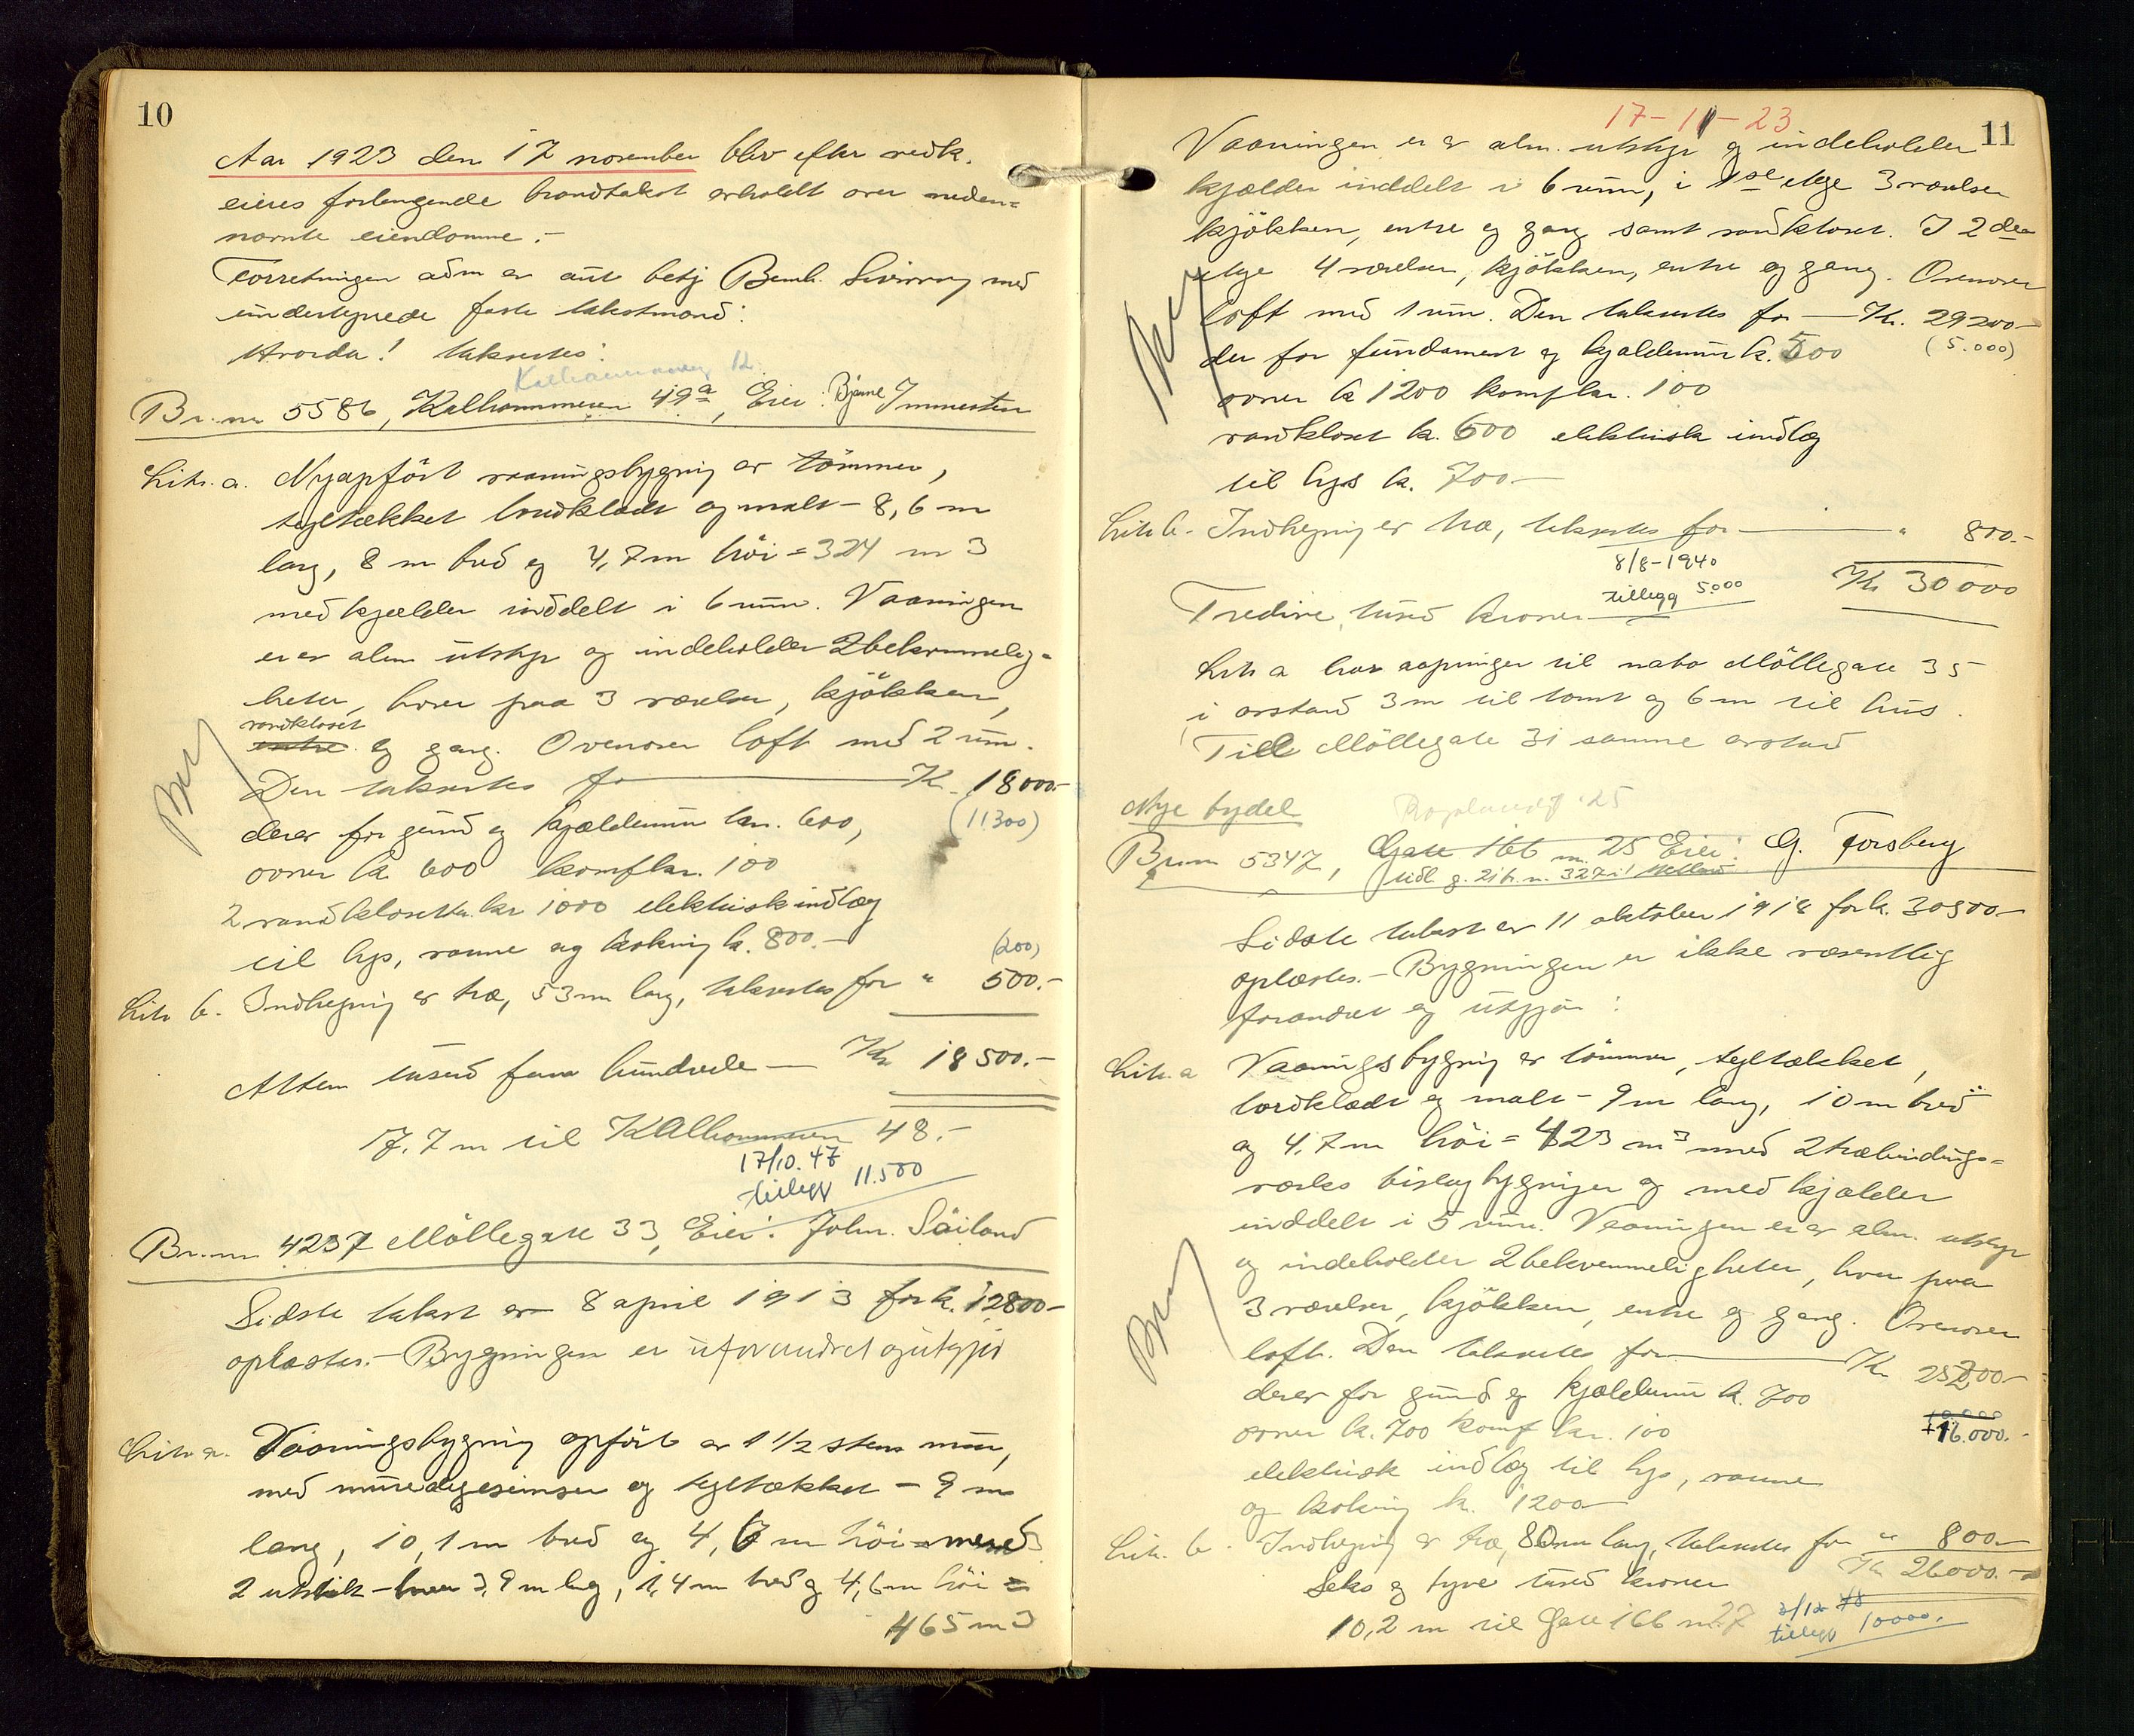 10
Aar 1923 den 17 november blev efter vedk.
eieres forlangende brandtakst avholdt over neden=
nævnte eiendomme.-
Forretningen adm av aut betj Bernh. med
undertegnede faste takstmænd:
Hvorda! takseres:
Br.nr 5586, Kalhammeren 49a, Eier: Bjarne Immerstein
Litr. a. Nyopført vaaningsbygning av tømmer,
tegltækket bordklædt og malt - 8,6 m
lang, 8 m bred og 4,7 m høi = 324 m3
med kjælder inddelt i 6 rum. Vaaningen
er av alm utstyr og indeholder 2 bekvemmelig=
heter, hver paa 3 værelser, kjøkken,
vandkloset
entre og gang. Ovenover loft med 2 rum.
Den takseres for Kr. 18000.-
derav for grund og kjældermur kr. 600, (11300)
ovner kr. 600 komfkr. 100
2 vandklosetter kr 1000 elektrisk indlæg
til lys, varme og kokning kr. 800.- (200)
Litr b. Indhegning av træ, 53 m lang, takseres for " 500.-
Atten tusend fem hundrede - Kr 18500.-
17,7 m til Kalhammeren 48.-
17/10. 47
tillegg 11.500
Br.nr 4237 Møllegate 33, Eier: John. Sæland
Sidste takst av 8 april 1913 for kr. 12800-
oplæstes.- Bygningen er uforandret og utgjør
Litr a. Vaaningsbygning opført av 1 1/2 stens mur,
med muredegesimser og tegltækket - 9 m
lang, 10,1 m bred og 4,6 m høi = med
2 utstik - hver 3,9 m lang, 1,4 m bred og 4,6 m høi =
465 m3
17-11-23
11
Vaaningen er av alm. utstyr og indeholder
kjælder inddelt i 6 rum, i 1ste etage 3 værelser
kjøkken, entre og gang samt vandkloset. I 2den
etage 4 værelser, kjøkken, entre og gang. Ovenover
loft med 1 rum. Den takseres for - Kr. 29200-
der for fundament og kjældermur kr. 500 (5.000)
ovner kr 1200 komfkr. 100
vandkloset kr. 600 elektrisk indlæg
til lys kr. 700-
Litr b. Indhegning av træ, takseres for " 800.-
8/8-1940
tillegg 5000
Kr 30000
Tredive tusend kroner
Litr a har aapninger til nabo Møllegate 35
i avstand 3 m til tomt og 6 m til hus.
Till Møllegate 31 samme avstand
Nye bydel
Br.nr 5347, Gate 166 nr. 25 Eier: G. Forsberg
tidl. g. 21 h. n. 327 i
Sidste takst av 11 oktober 1918 for kr. 30500-
oplæstes.- Bygningen er ikke væsentlig
forandret og utgjør:
Litr. a Vaaningsbygning av tømmer, tegltækket,
bordklædt og malt - 9 m lang, 10 m bred
og 4,7 m høi = 423 m3 med 2 træbindings=
verks bislagbygninger og med kjælder
inddelt i 5 rum. Vaaningen er av alm. utstyr
og indeholder 2 bekvemmeligheter, hver paa
3 værelser, kjøkken, entre og gang. Ovenover
loft. Den takseres for Kr 25200-
derav for grund og kjældermur kr. 700
10.000
+16.000.-
ovner kr. 700 komf kr. 100
elektrisk indlæg til lys, varme
og kokning kr. 1200-
Litr. b. Indhegning av træ, 80 m lang, takseres for " 800.-
Seks og tyve tusend kroner Kr 26000.-
10,2 m til Gate 166 nr. 27
tillegg 10000.